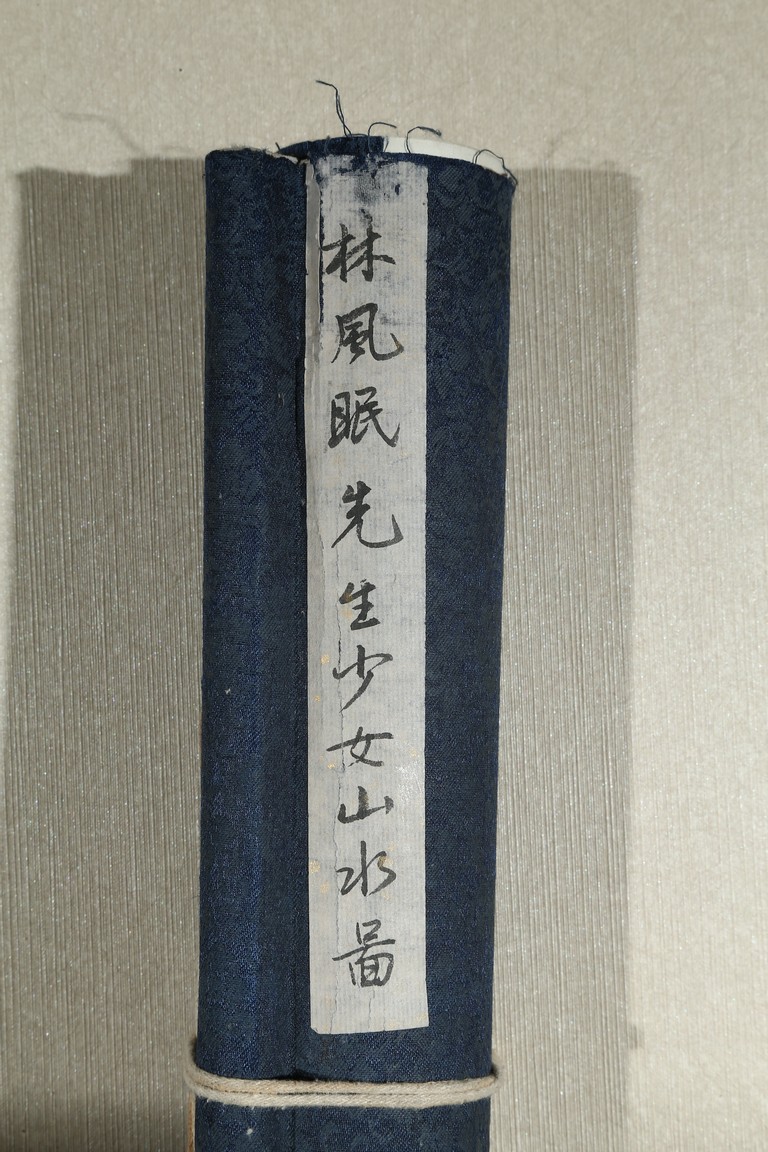 林風眠先生少女山水啚